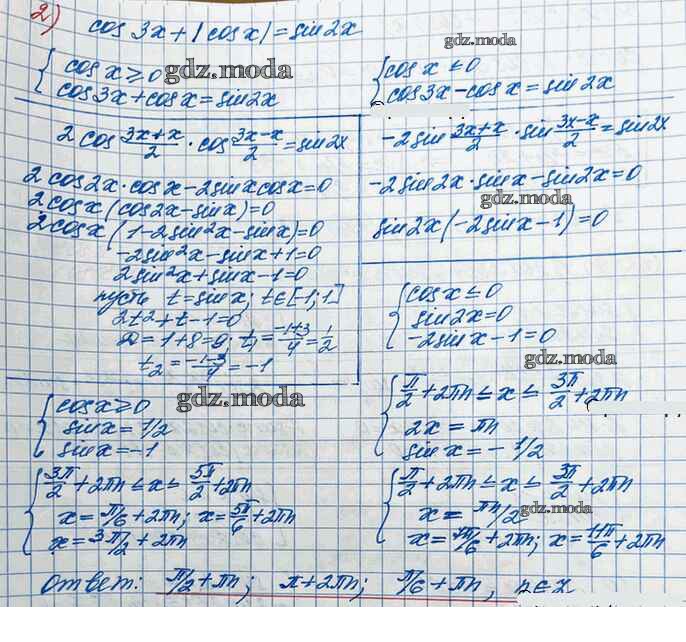 2) cos 3x + |cos x| = sin 2x
gdz.moda
{ cos x ≥ 0
cos 3x + cos x = sin 2x
gdz.moda
{ cos x ≤ 0
cos 3x - cos x = sin 2x
2 cos (3x+x)/2 · cos (3x-x)/2 = sin 2x
2 cos 2x · cos x - 2 sin x cos x = 0
2 cos x (cos 2x - sin x) = 0
2 cos x (1 - 2 sin²x - sin x) = 0
-2 sin²x - sin x + 1 = 0
2 sin²x + sin x - 1 = 0
пусть t = sin x; t ∈ [-1; 1]
2t² + t - 1 = 0
D = 1 + 8 = 9; t₁ = (-1+3)/4 = 1/2
t₂ = (-1-3)/4 = -1
-2 sin (3x+x)/2 · sin (3x-x)/2 = sin 2x
gdz.moda
-2 sin 2x · sin x - sin 2x = 0
gdz.moda
sin 2x (-2 sin x - 1) = 0
{ cos x ≤ 0
sin 2x = 0
-2 sin x - 1 = 0
gdz.moda
{ cos x ≥ 0
sin x = 1/2
sin x = -1
gdz.moda
{ π/2 + 2πn ≤ x ≤ 3π/2 + 2πn
2x = πn
sin x = - 1/2
{ 3π/2 + 2πn ≤ x ≤ 5π/2 + 2πn
x = π/6 + 2πn; x = 5π/6 + 2πn
x = 3π/2 + 2πn
{ π/2 + 2πn ≤ x ≤ 3π/2 + 2πn
x = πn/2
gdz.moda
x = 7π/6 + 2πn; x = 11π/6 + 2πn
Ответ: π/2 + πn; π + 2πn; π/6 + πn, n ∈ Z
gdz.moda